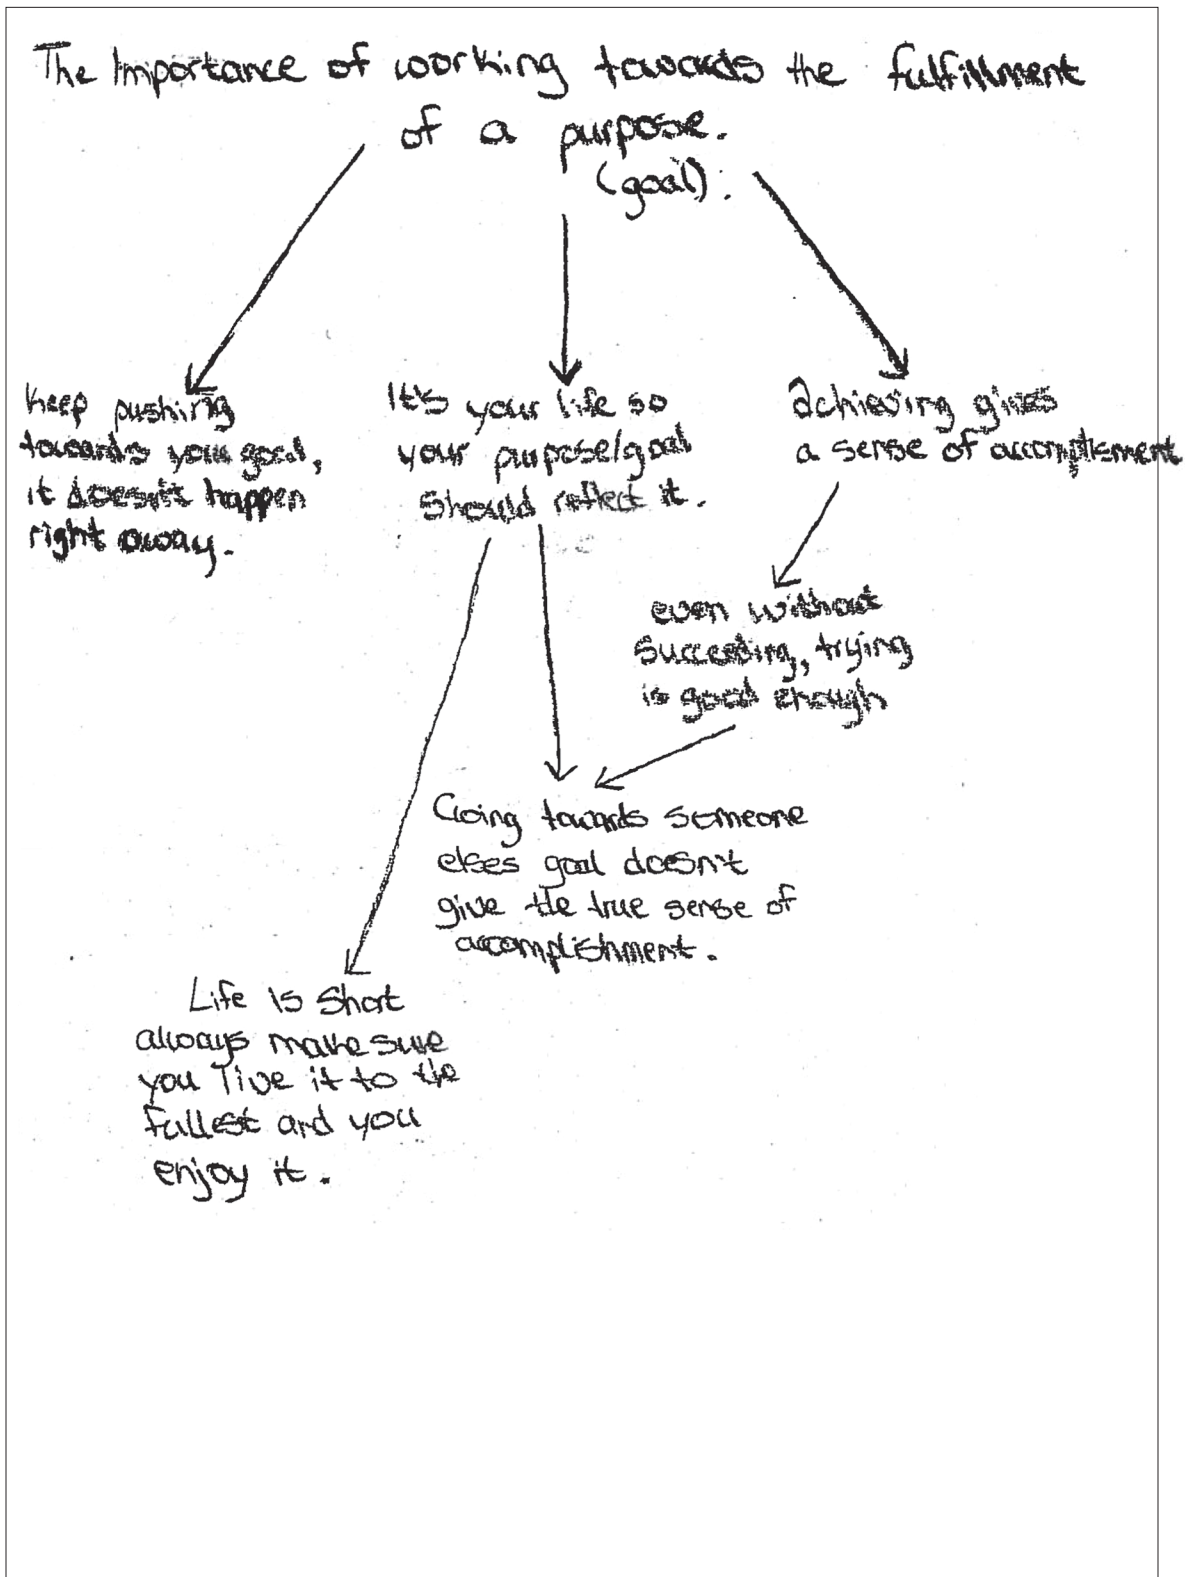 The Importance of working towards the fulfillment
of a purpose.
(goal).
Keep pushing
towards your goal,
it doesn't happen
right away.
It's your life so
your purpose/goal
should reflect it.
achieving gives
a sense of accomplisment
even without
succeeding, trying
is good enough
Going towards someone
elses goal doesn't
give the true sense of
accomplishment.
Life is short
always make sure
you live it to the
fullest and you
enjoy it.